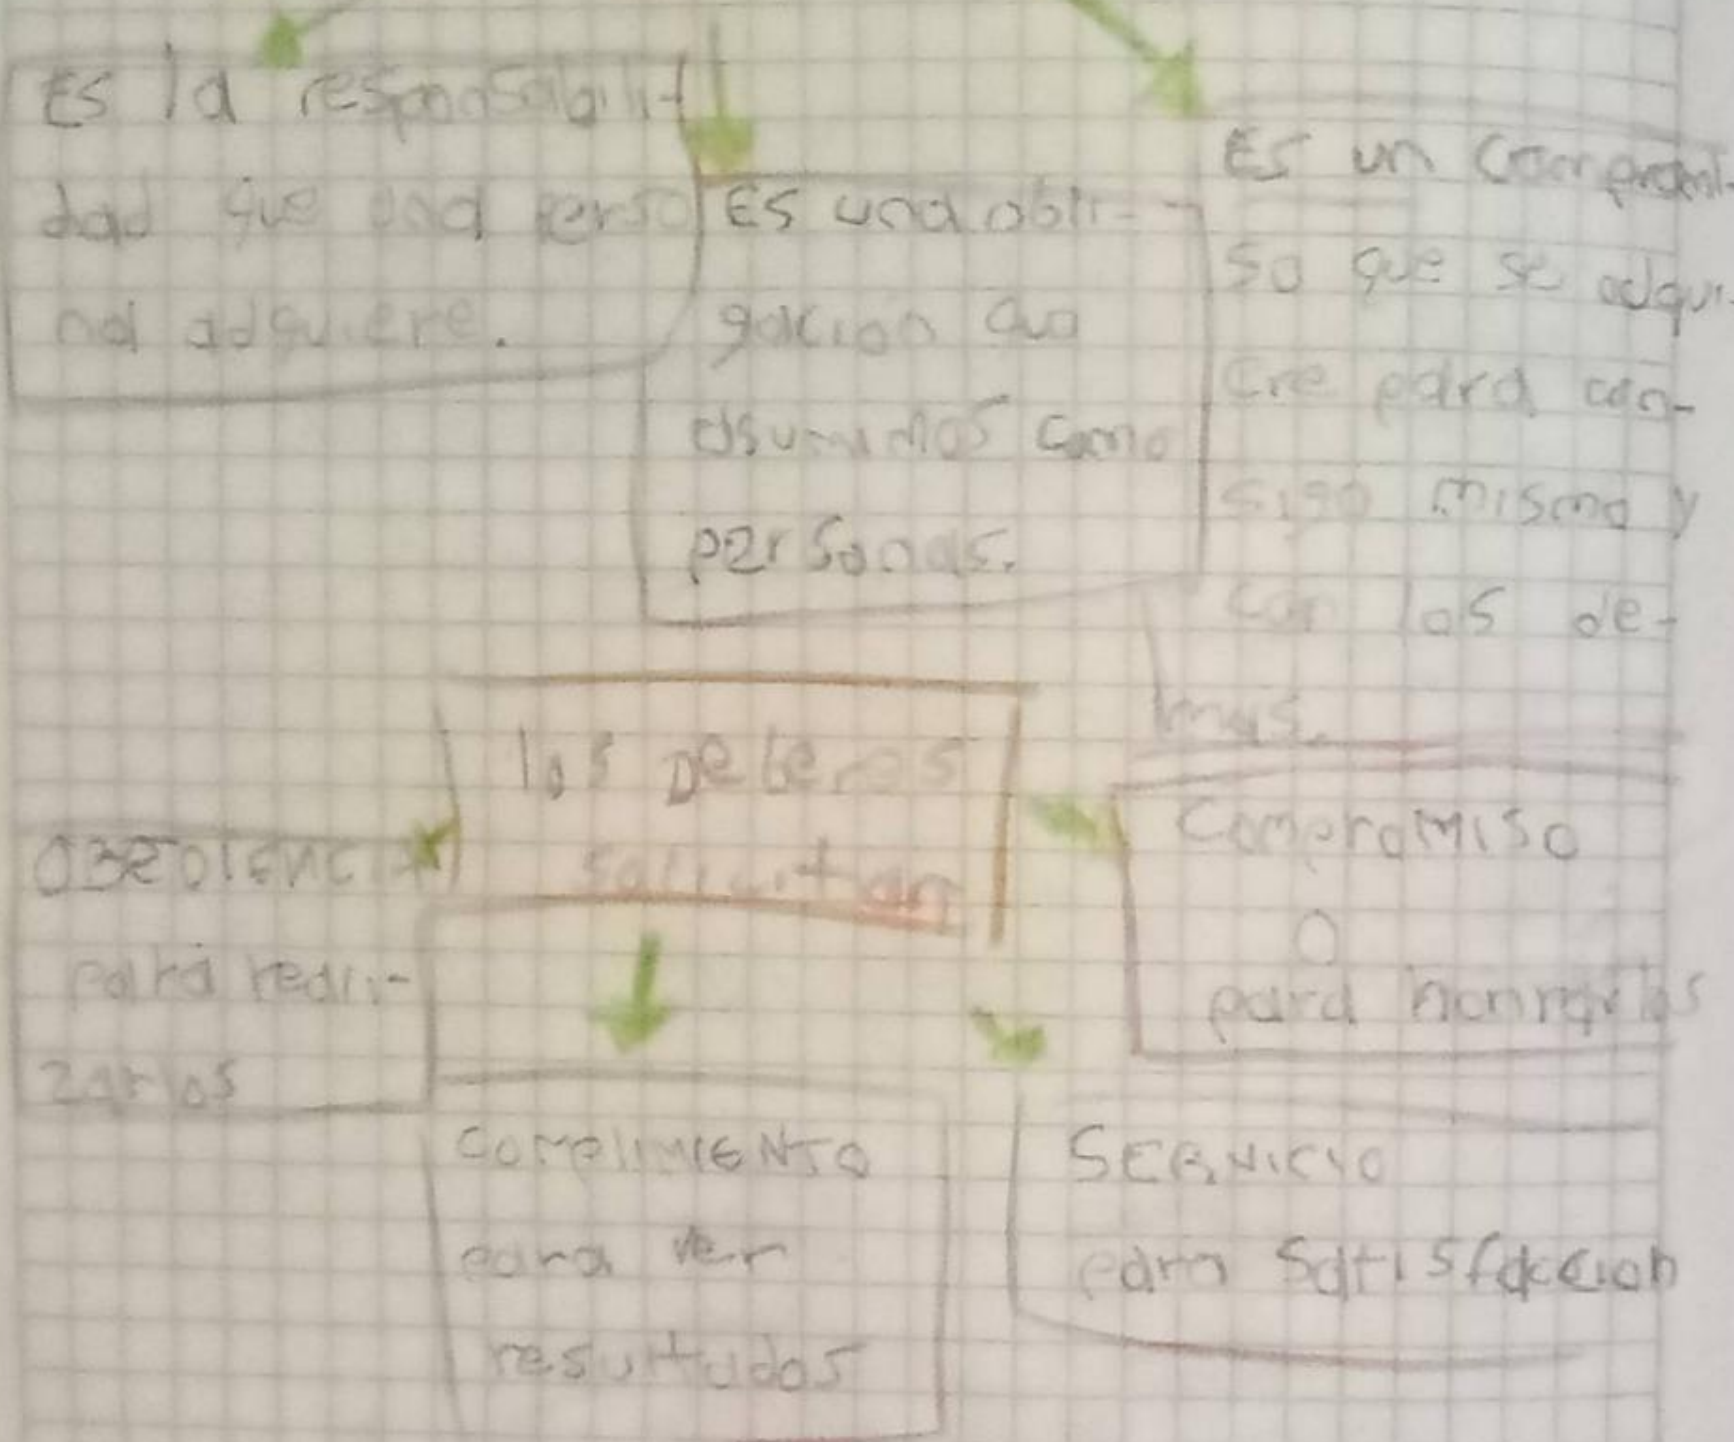 Es la responsabilit
dad que una perso
na adquiere.
Es una obli-
gacion que
asumimos como
personas.
Es un compromi-
so que se adqui
ere para con-
sigo mismo y
con los de-
mas.
los Deberes
solicitan
OBEDIENCIA
para reali-
zarlos
COMPROMISO
o
para honrarlos
COMPLIMIENTO
para ver
resultados
SERVICIO
para Satisfaccion